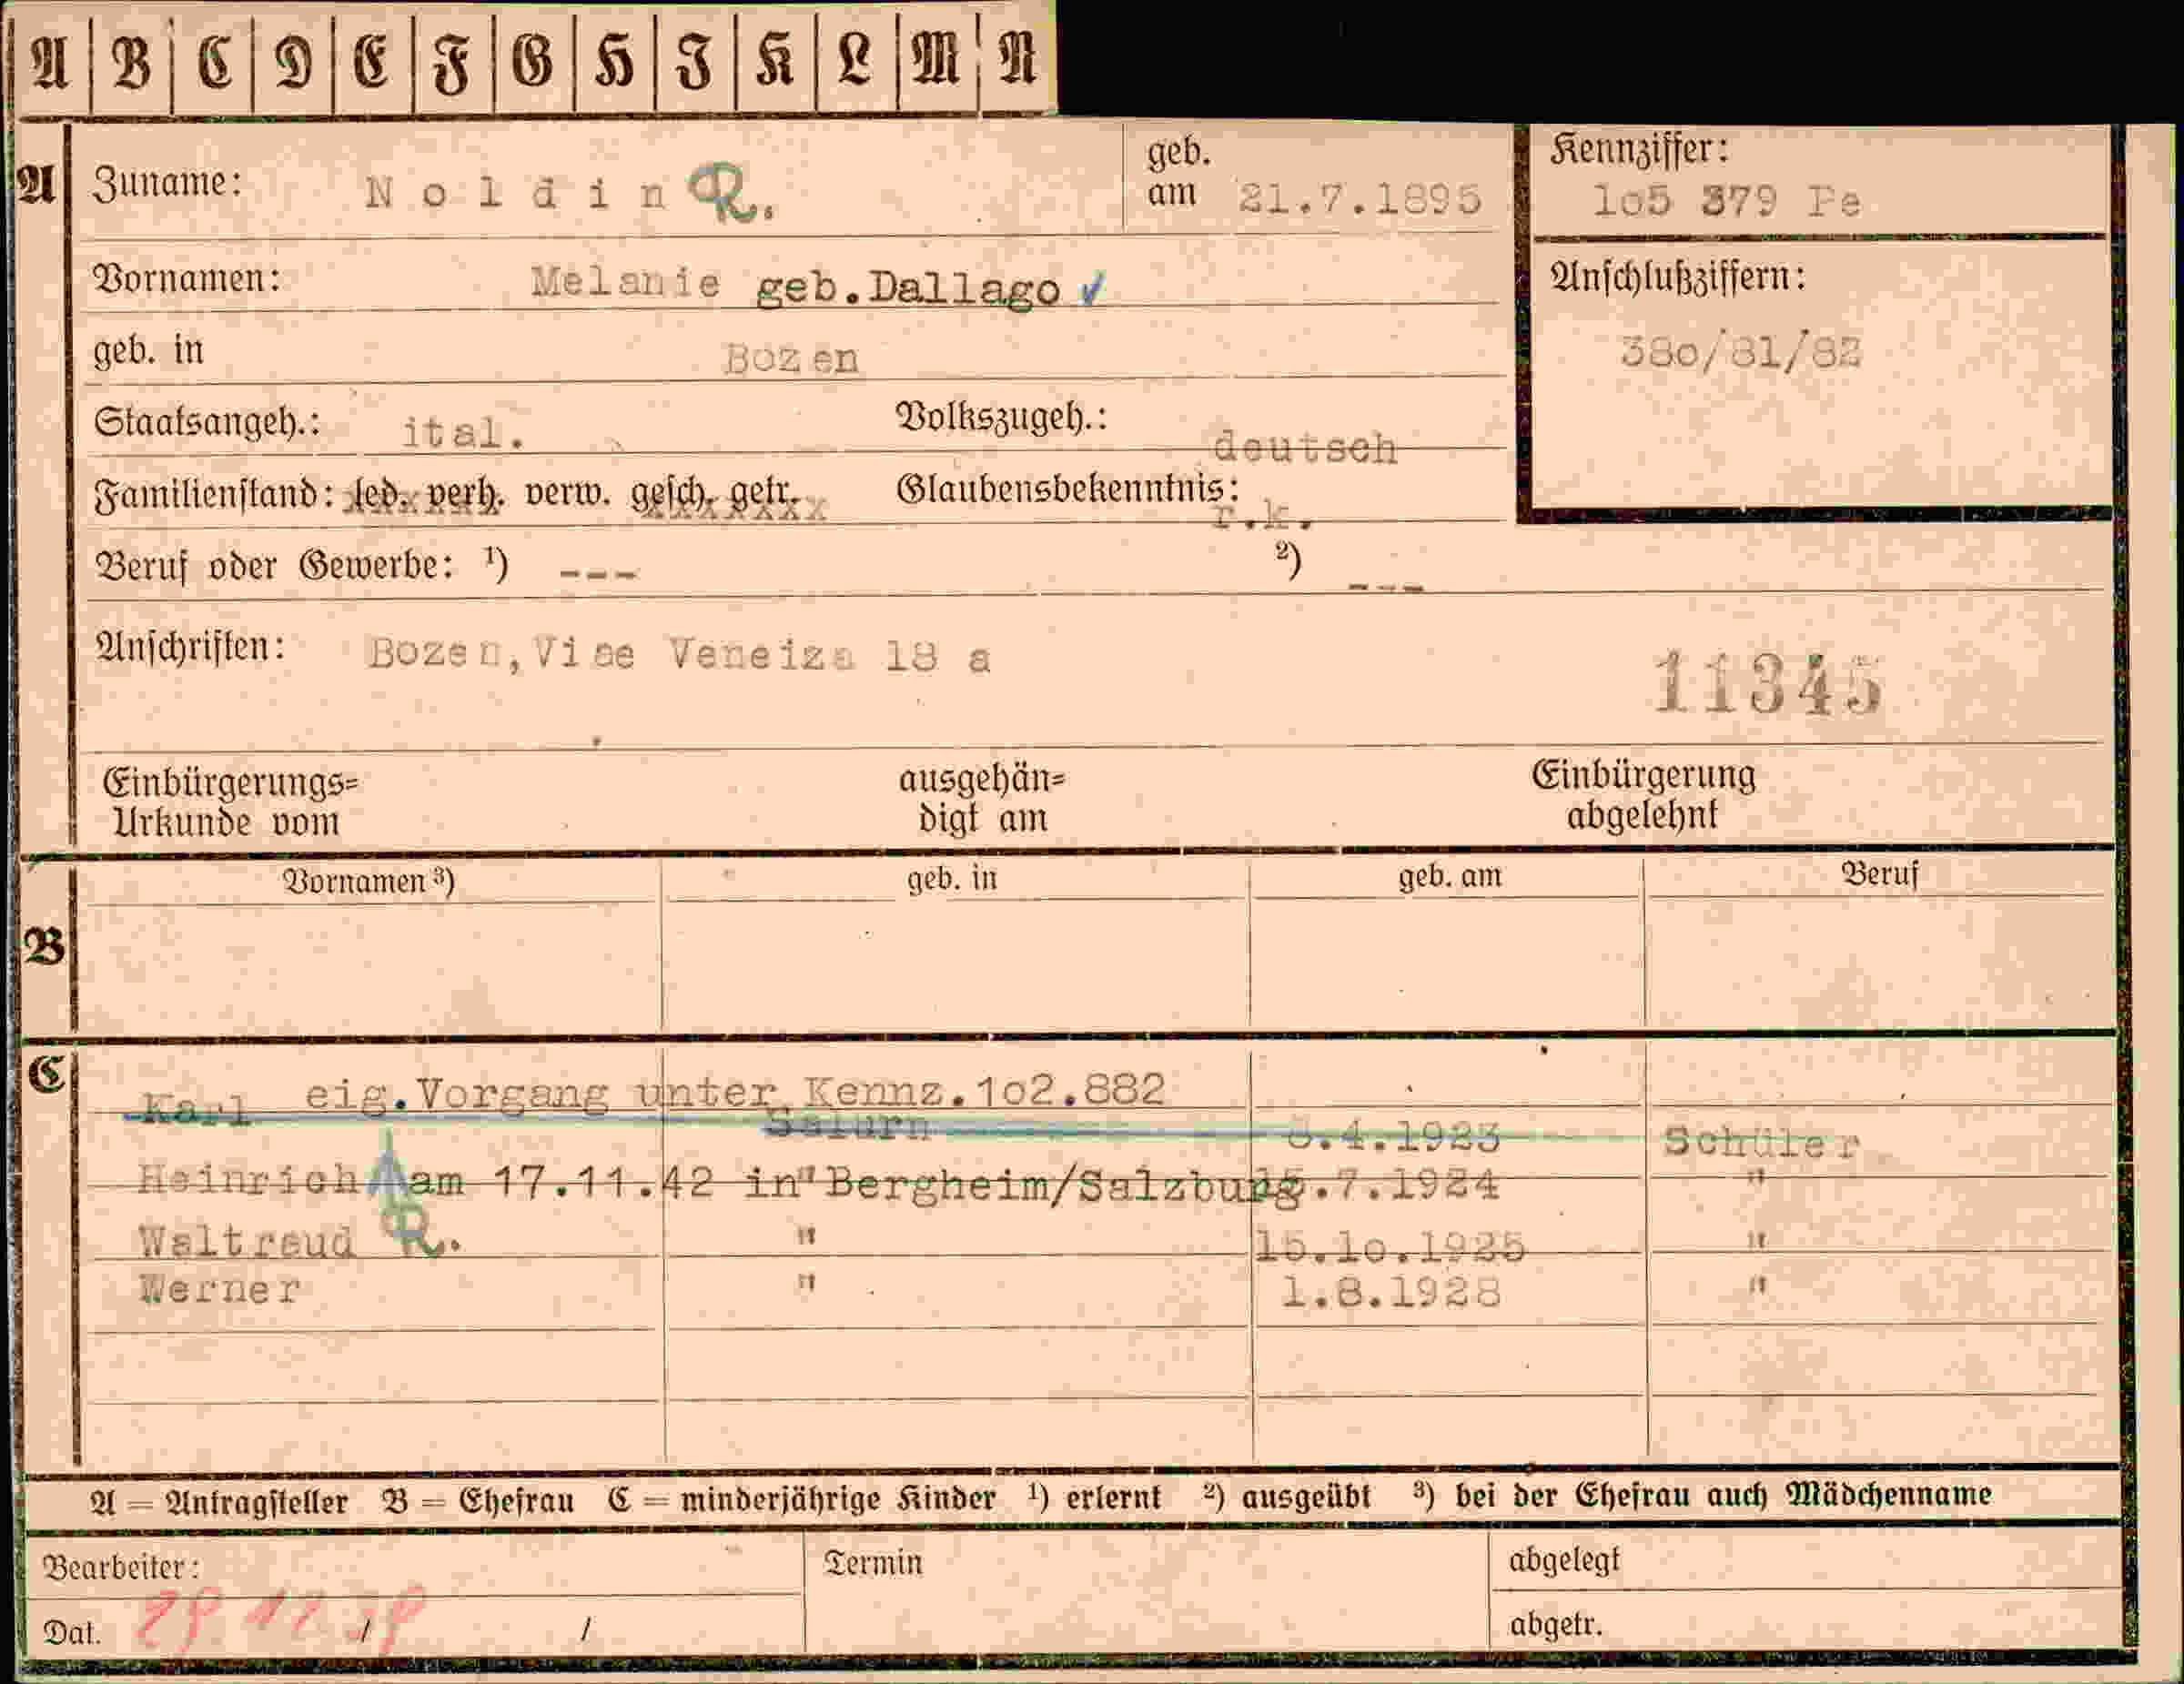 A B C D E F G H I K L M N
A Zuname: Noldin R. geb. am 21.7.1895 Kennziffer: 1o5 379 Pe
Vornamen: Melanie geb.Dallago ✓ Anschlußziffern:
geb. in Bozen 38o/81/82
Staatsangeh.: ital. Volkszugeh.: deutsch
Familienstand: led. verh. verw. gesch. getr. Glaubensbekenntnis: r.k.
Beruf oder Gewerbe: 1) --- 2) ---
Anschriften: Bozen,Viae Veneiza 18 a 11345
Einbürgerungs= ausgehän= Einbürgerung
Urkunde vom digt am abgelehnt
Vornamen 3) geb. in geb. am Beruf
B
C
Karl eig.Vorgang unter Kennz.1o2.882
Salurn .4.1923 Schüler
Heinrich am 17.11.42 in " Bergheim/Salzburg .7.1924 "
Waltraud R. " 15.1o.1925 "
Werner " 1.8.1928 "
A = Antragsteller B = Ehefrau C = minderjährige Kinder 1) erlernt 2) ausgeübt 3) bei der Ehefrau auch Mädchenname
Bearbeiter: Termin abgelegt
Dat. / / abgetr.